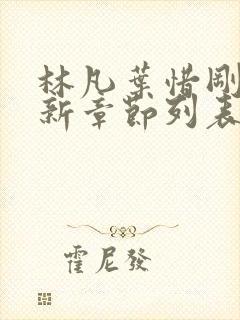 林凡葉惜剛
新章節列表
霍尼發